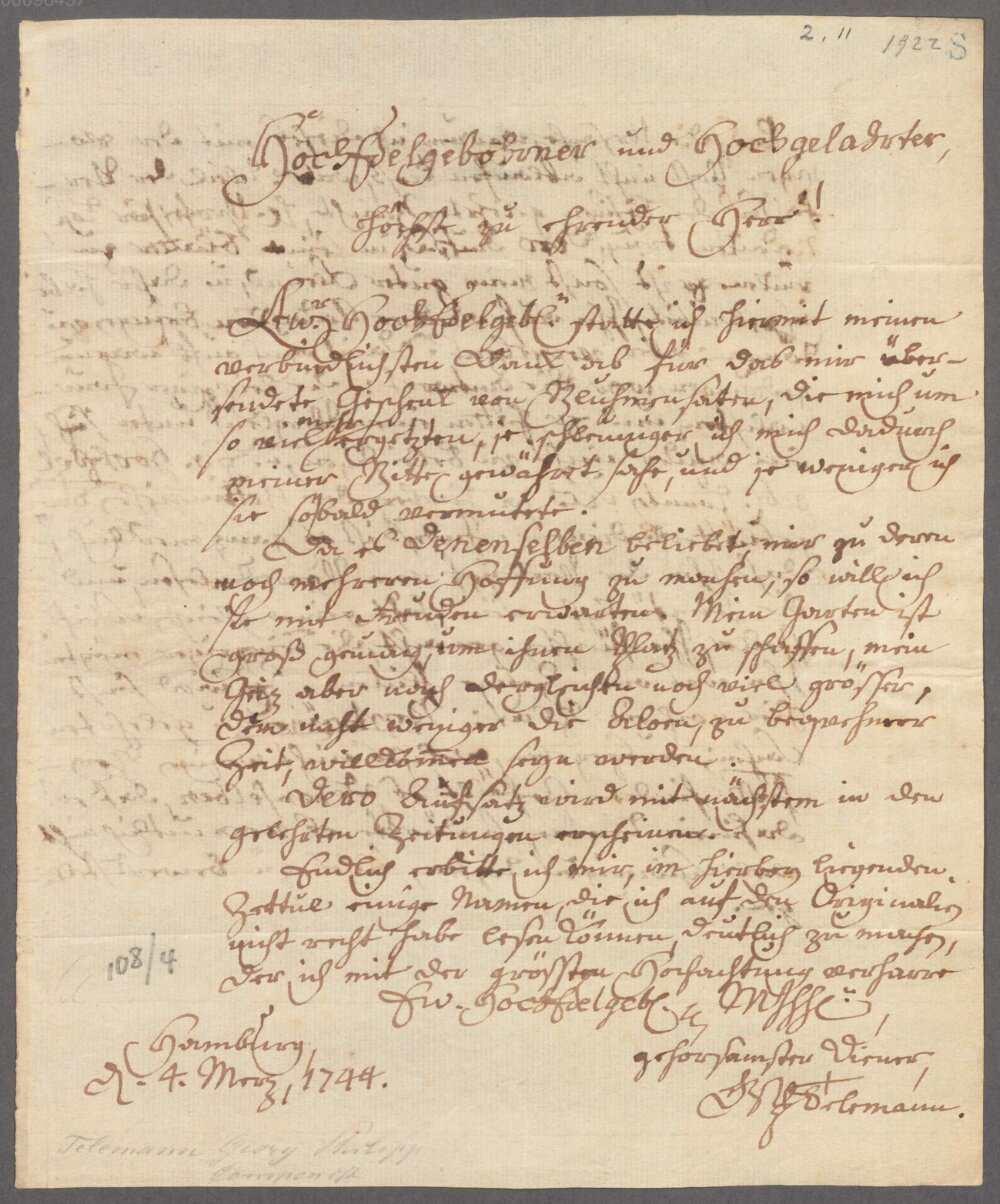 00090437
2, 11 1922 S
HochEdelgebohrner und Hochgelahrter,
Höchst zu ehrender Herr!
Ew. HochEdelgebl. statte ich hiermit meinen
verbindlichsten Danck ab für das mir über-
sendete Geschenk von Bluhmensaten, die mich um
so viel mehr ergetzten, je schleuniger ich mich dadurch
meiner Bitte gewähret sahe, und je weniger ich
sie sobald vermutete.
Da es Denenselben beliebet, mir zu deren
noch mehreren Hoffnung zu machen, so will ich
sie mit Freuden erwarten. Mein Garten ist
groß genung, um ihnen Platz zu schaffen, mein
Geiz aber nach dergleichen noch viel grösser,
dem nicht weniger die Aloen, zu beqwehmer
Zeit, willkommen seyn werden.
Dero Aufsatz wird mit nächstem in den
gelehrten Zeitungen erscheinen.
Endlich erbitte ich mir, im hierbey liegenden
Zettul einige Namen, die ich auf den Originalien
nicht recht habe lesen können, deutlich zu machen,
der ich mit der grössten Hochachtung verharre
Ew. HochEdelgeb.
gehorsamster Diener,
Telemann.
Hamburg,
d. 4. Merz, 1744.
108/4
Telemann Georg Philipp
Componist